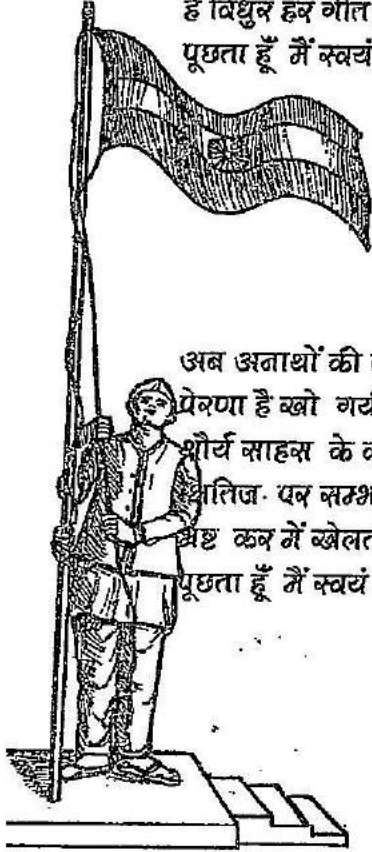 है विधुर हर गीत
पूछता हूँ मैं स्वयं
अब अनाथों की
प्रेरणा है खो गयी
शौर्य साहस के
क्षितिज पर सम्भ
भ्रष्ट कर में खेलत
पूछता हूँ मैं स्वयं